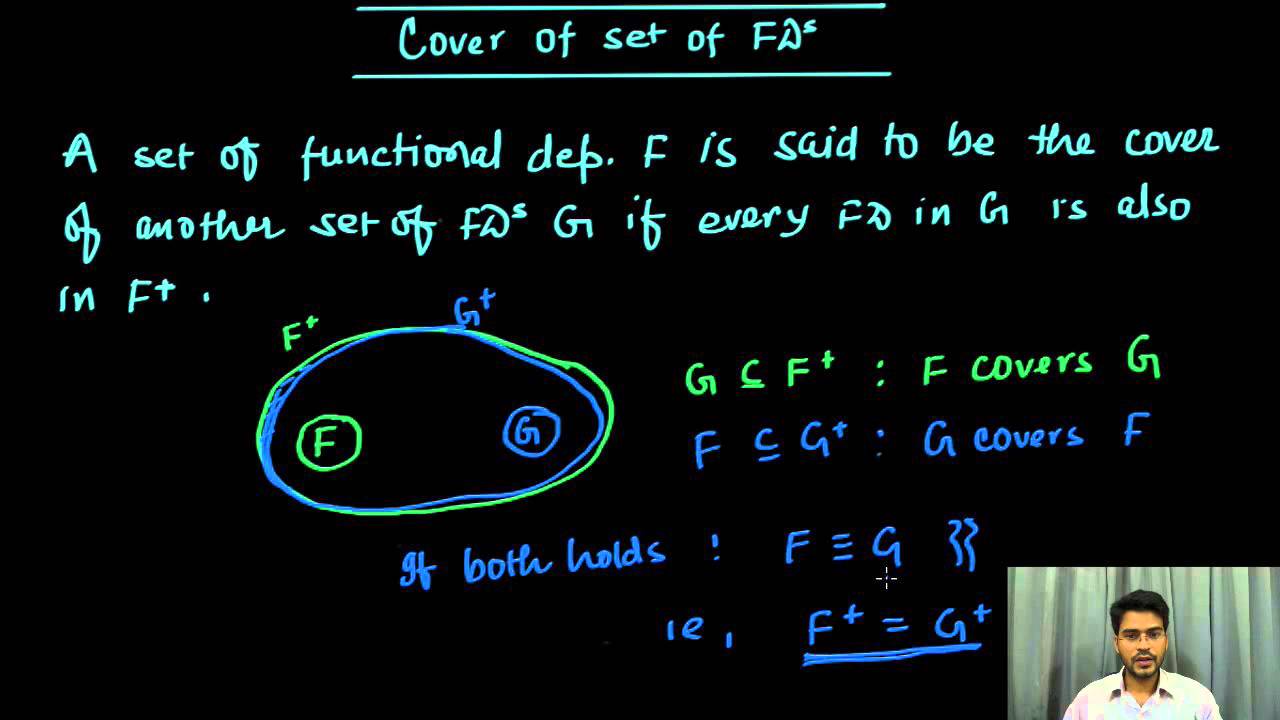 Cover of set of FDs
A set of functional dep. F is said to be the cover
of another set of FDs G if every FD in G is also
in F+ .
F+
G+
F
G
G ⊆ F+ : F covers G
F ⊆ G+ : G covers F
If both holds : F ≡ G }}
ie, F+ = G+